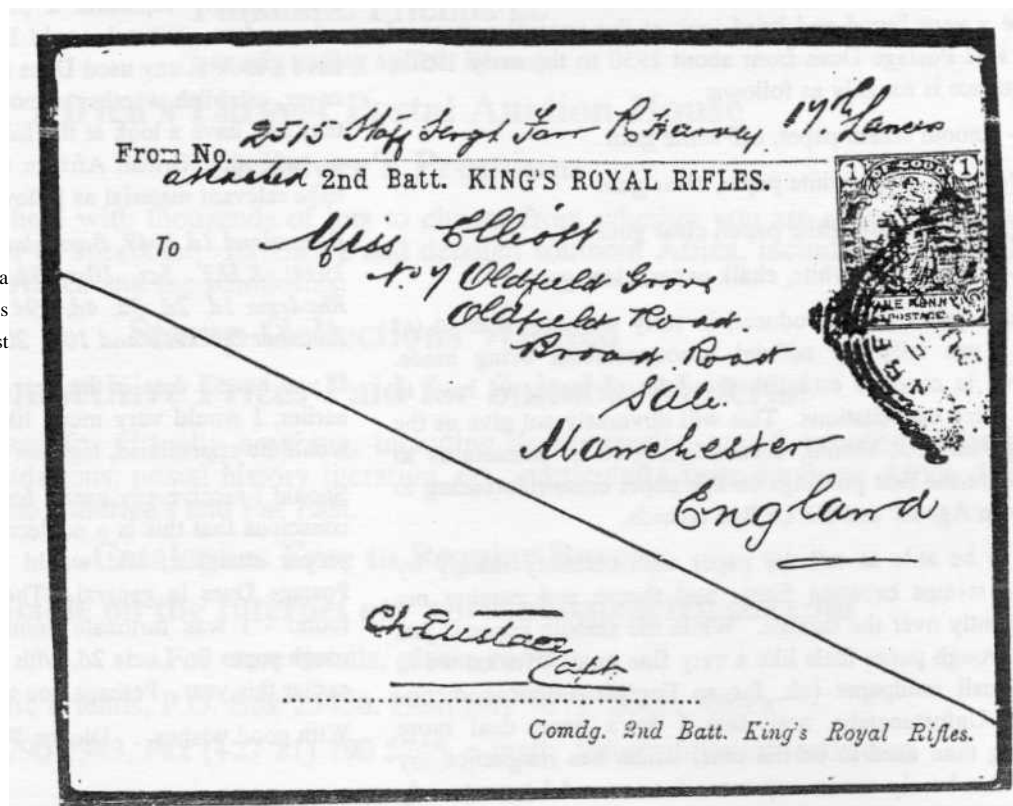 2515 Staff Sergt Farr R Harvey 17th Lancers
From No.
attached 2nd Batt. KING'S ROYAL RIFLES.
1 1
To Miss Elliott
No 7 Oldfield Grove
Oldfield Road
Broad Road
Sale.
Manchester
England
POSTAGE
Ch Eustace
Capt
Comdg. 2nd Batt. King's Royal Rifles.
a
s
st